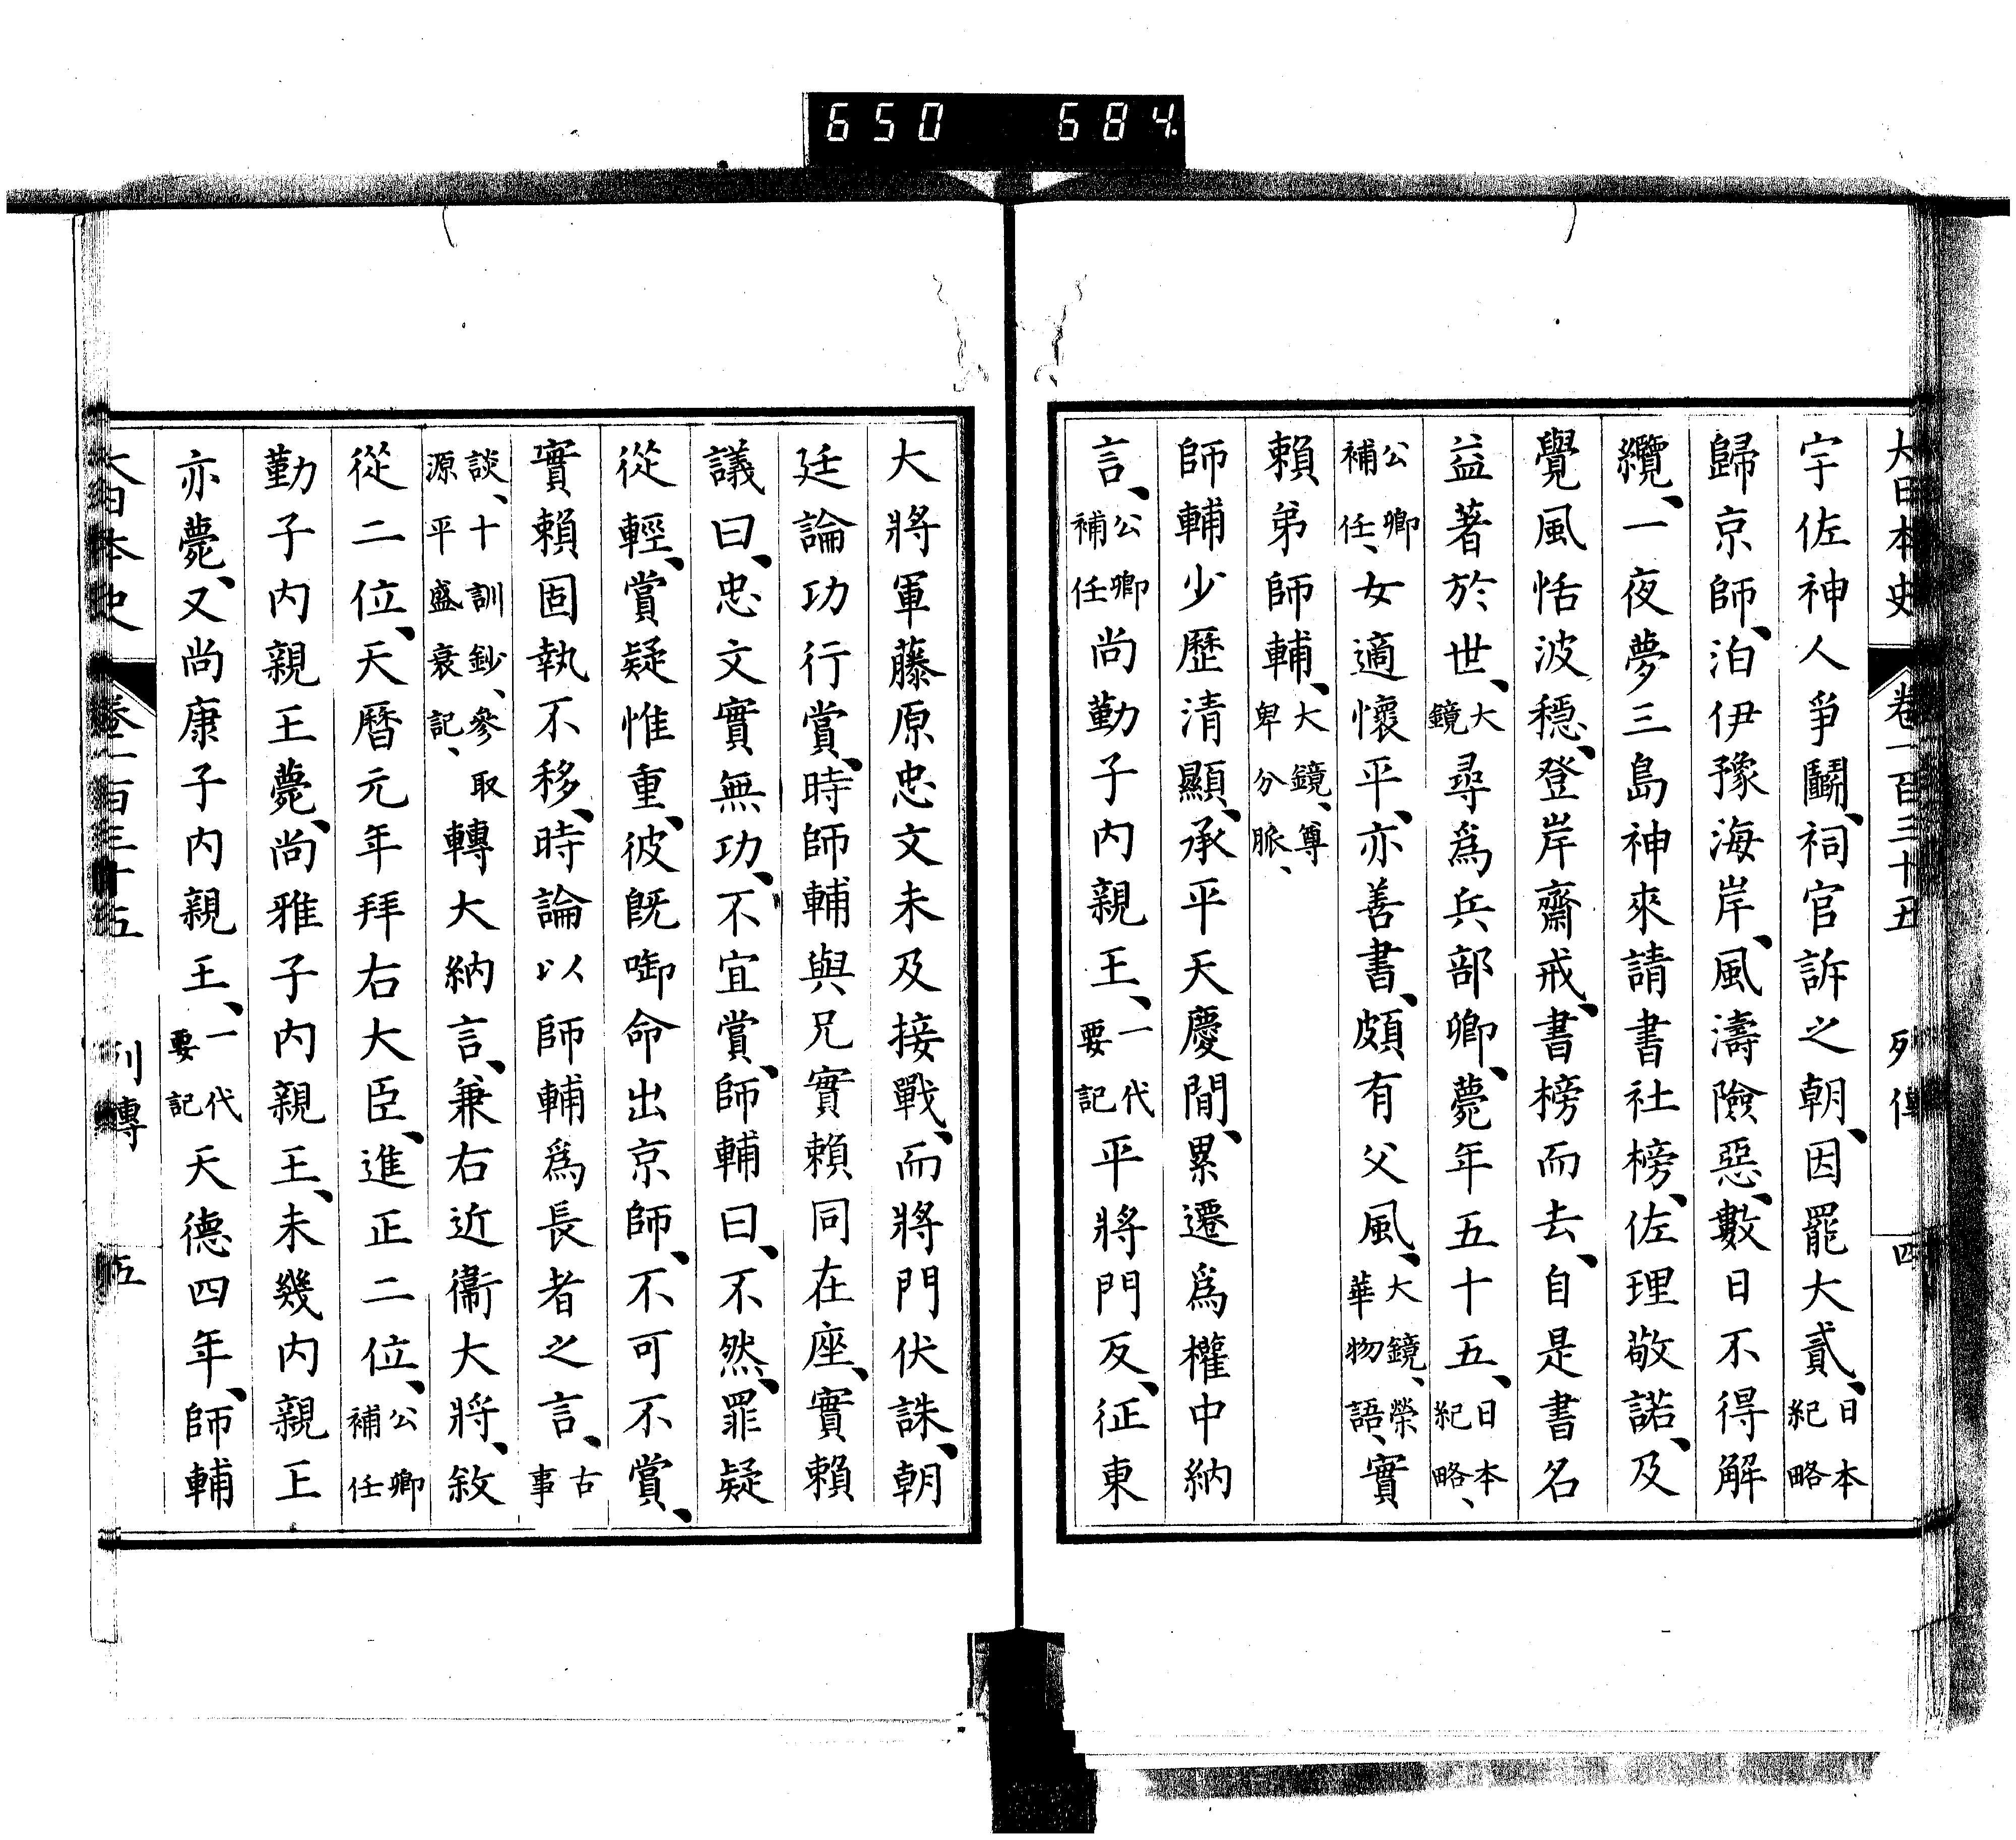 650 684
大日本史 卷一百三十五 列傳 四
宇佐神人爭鬭、祠官訴之朝、因罷大貳、日本紀略
歸京師、泊伊豫海岸、風濤險惡、數日不得解
纜、一夜夢三島神來請書社榜、佐理敬諾、及
覺風恬波穩、登岸齋戒、書榜而去、自是書名
益著於世、大鏡尋爲兵部卿、薨年五十五、日本紀略、
公卿補任、女適懷平、亦善書、頗有父風、大鏡、榮華物語、實
賴弟師輔、大鏡、尊卑分脈、
師輔少歷清顯、承平天慶間、累遷爲權中納
言、公卿補任尚勤子內親王、一代要記平將門反、征東
大將軍藤原忠文未及接戰、而將門伏誅、朝
廷論功行賞、時師輔與兄實賴同在座、實賴
議曰、忠文實無功、不宜賞、師輔曰、不然、罪疑
從輕、賞疑惟重、彼既啣命出京師、不可不賞、
實賴固執不移、時論以師輔爲長者之言、古事
談、十訓鈔、參取源平盛衰記、轉大納言、兼右近衞大將、敘
從二位、天曆元年拜右大臣、進正二位、公卿補任
勤子內親王薨、尚雅子內親王、未幾內親王
亦薨、又尚康子內親王、一代要記天德四年、師輔
大日本史 卷一百三十五 列傳 五